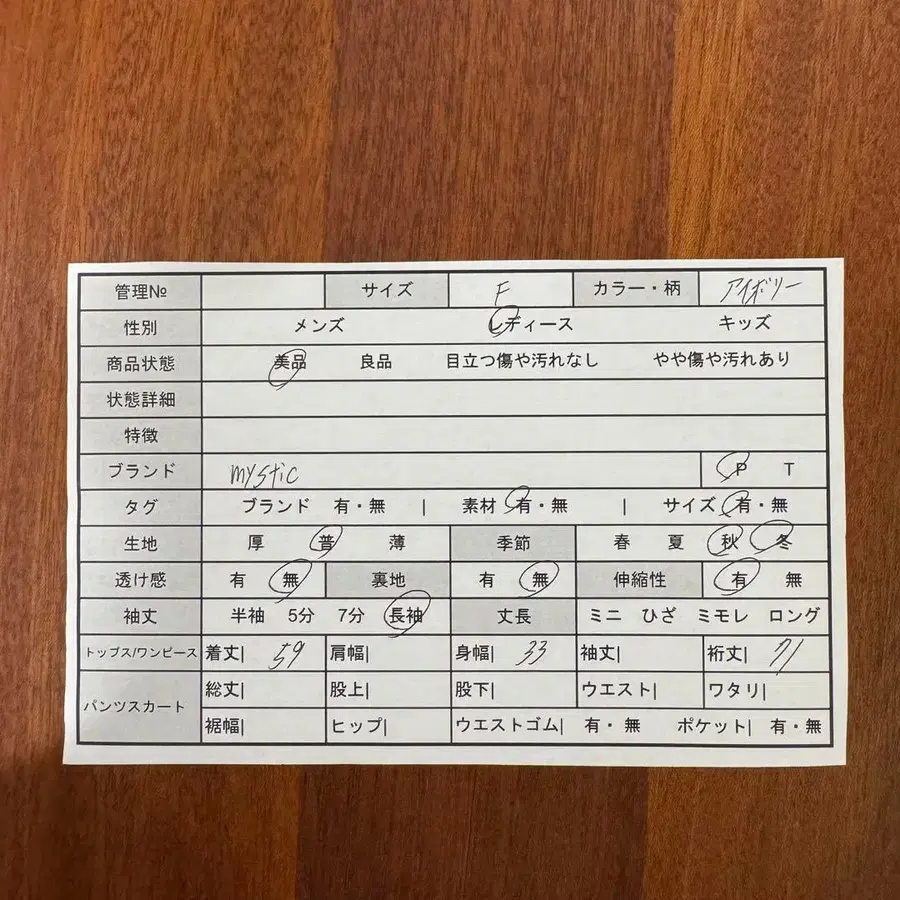 管理№ サイズ F カラー・柄 アイボリー
性別 メンズ レディース キッズ
商品状態 美品 良品 目立つ傷や汚れなし やや傷や汚れあり
状態詳細
特徴
ブランド mystic P T
タグ ブランド 有・無 | 素材 有・無 | サイズ 有・無
生地 厚 普 薄 季節 春 夏 秋 冬
透け感 有 無 裏地 有 無 伸縮性 有 無
袖丈 半袖 5分 7分 長袖 丈長 ミニ ひざ ミモレ ロング
トップス/ワンピース 着丈| 59 肩幅| 身幅| 33 袖丈| 裄丈| 71
パンツスカート 総丈| 股上| 股下| ウエスト| ワタリ|
裾幅| ヒップ| ウエストゴム| 有・無 ポケット| 有・無